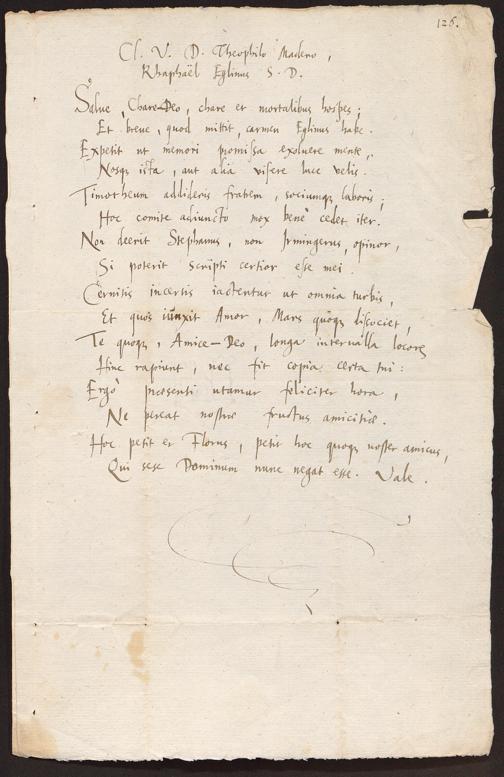 126.
Cl. V. D. Theophilo Madero,
Rhaphaël Eglinus S. D.
Salue, Chare-Deo, chare et mortalibus hospes;
Et breue, quod mittit, carmen Eglinus habe.
Expetit ut memori promissa exoluere mente,
Nosq; ista, aut alia visere luce velis.
Timotheum addideris fratrem, sociumq; laboris;
Hoc comite adiuncto mox benè cedet iter.
Non deerit Stephanus, non Irmingerus, opinor,
Si poterit scripti certior esse mei.
Cernitis incertis iactentur ut omnia turbis,
Et quos iunxit Amor, Mars quoq; dissociet,
Te quoq;, Amice-Deo, longa interualla locorꝝ
Hinc rapiunt, nec fit copia certa tui:
Ergò praesenti utamur feliciter hora,
Ne pereat nostrae fructus amicitiae.
Hoc petit et Florus, petit hoc quoq; noster amicus,
Qui sese Dominum nunc negat esse. Vale.